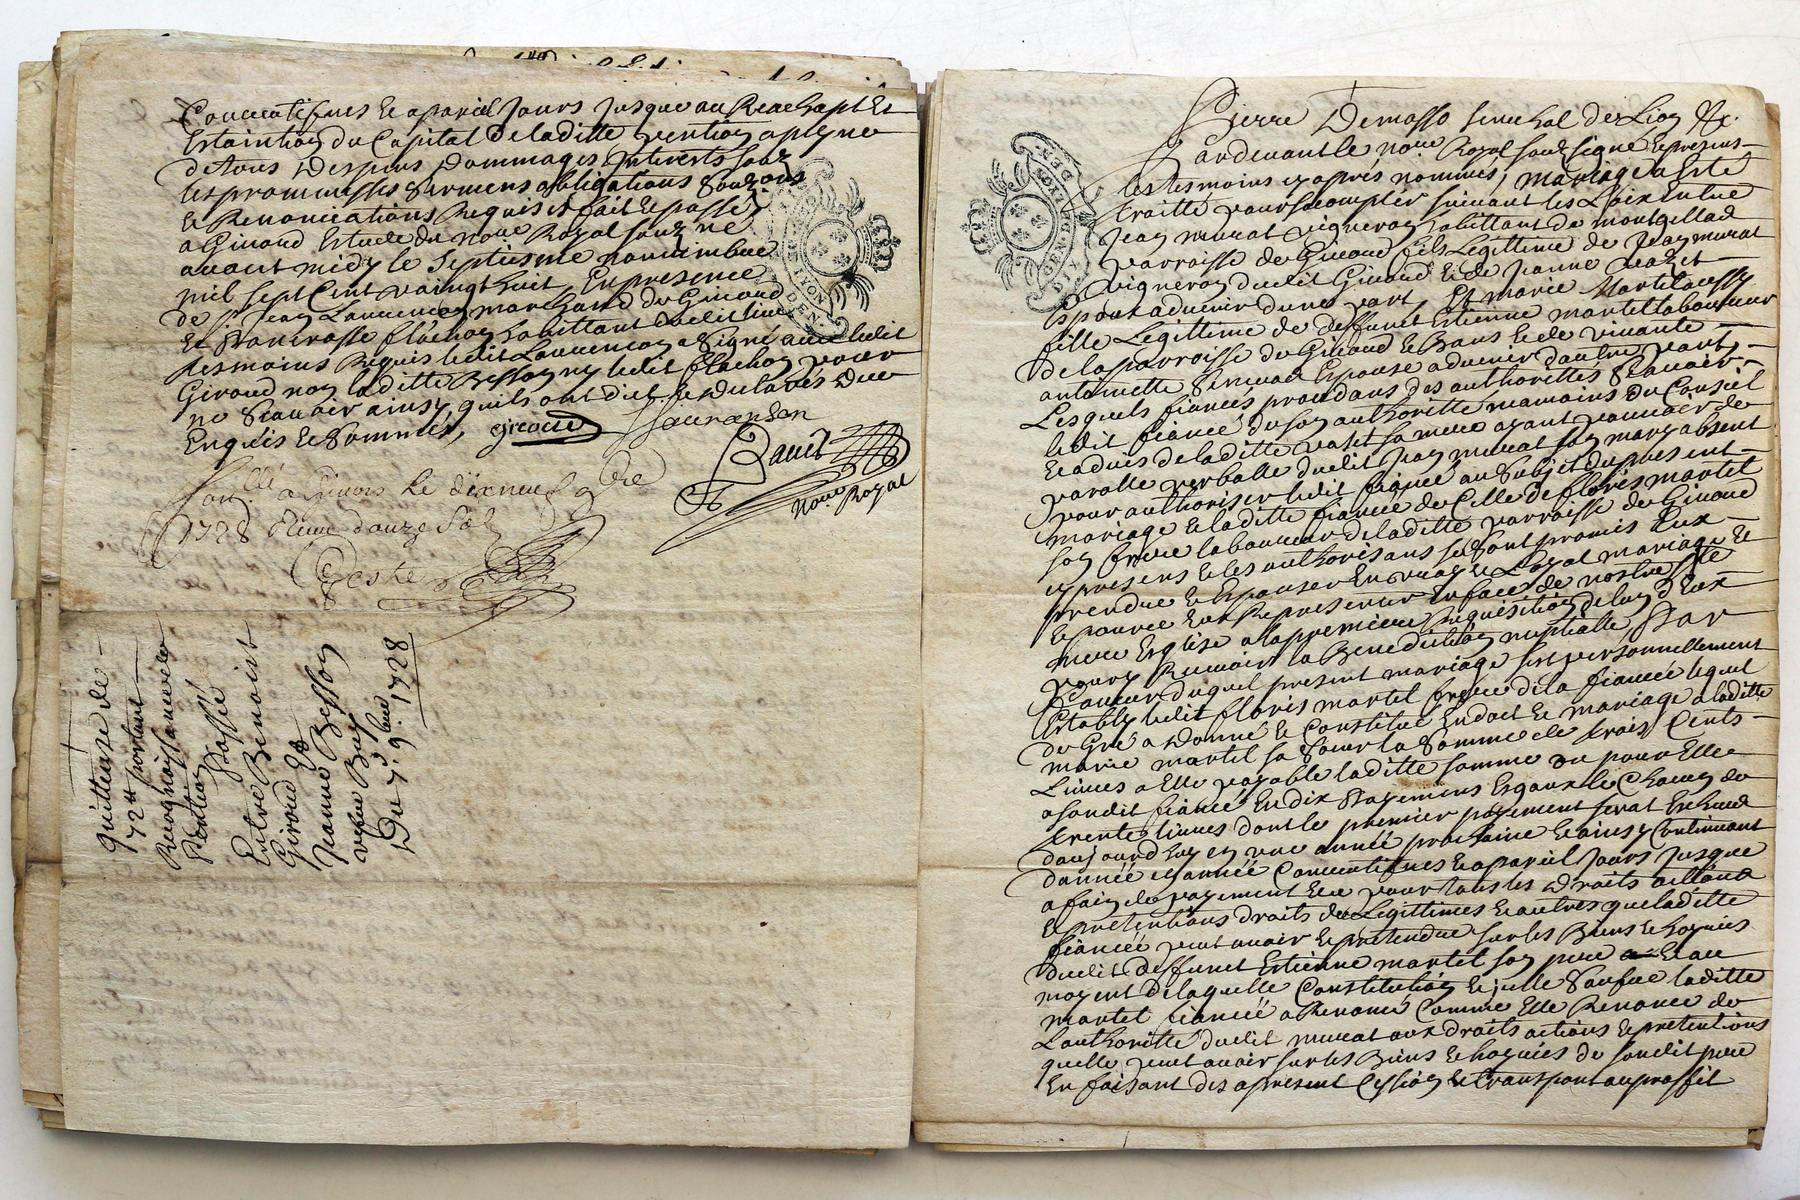 Consecutifves et a pareil jours jusque au Reachapt Et
Extaintion du Capital de laditte pention a peyne
de tous Despens Dommages Interests sous
les prommesses sermens obligations soumons
et Renonciations Requises fait et passé
a Givord Estude du nore Royal sousne
avant midy le septiesme novembre
mil sept Cent vaingt huit, En presence
de sr Jean Laurencon marchand de Givord
Et Flachon habittant dudit lieu
tesmoins Requis ledit Laurencon a signé avec ledit
Giroud non laditte Besson ny ledit flachon pour
ne scavoir ainsy quils ont dict et declarés Due
Enquis et sommés, giroud Laurenson
nore Royal
a Givors le dixneuf 9bre
1728 douze sols
Quittance de
72 ₶ portant
Recognoissance de
Pention
Passée
Entre Benoist
Giroud Et
Jeanne Besson
vefve
Du 7e 9bre 1728
Pierre Demasso senechal de Lion &c.
Pardevant le nore Royal soussigné et presens
les tesmoins cy après nommés, mariage a esté
traitté pour saccomplir suivant les Loix Entre
Jean murat vigneron habittant de montgellad
parroisse de Givord fils Legittime de Jean murat
vigneron dudit Givord et de Jeanne
Espoux advenir dune part, Et marie Martel aussy
fille Legittime de deffunct Estienne martel laboureur
de la parroisse de Givord et Bans et de vivante
antoinette Espouse advenir dautre part,
Lesquels fiancés procedans des authorittes scavoir
ledit fiancé de son authoritte mamoins du Conseil
et advis de laditte sa mere ayant pouvoir de
parolle verballe dudit Jean murat son mary absent
pour authoriser ledit fiancé au subjet du present
mariage et laditte fiancée de Celle de floris martel
son frere laboureur de laditte parroisse de Givord
cy presens et les authorisans se sont promis Eux
prendre et Espouser En vray et Loyal mariage et
et pour ce Eux Representer En face de nostre ste
mere Esglise a la premiere Requisition de lun d'Eux
pour y Recevoir la Benediction nuptialle Par
faveur duquel present mariage s'est personnellement
Estably ledit floris martel frere de la fiancée lequel
de Gré a Donné et Constitué En dot et mariage a laditte
marie martel sa sœur la somme de trois Cents
Livres a Elle payable laditte somme ou pour Elle
a sondit fiancé En dix payemens Esgaux de Chacun de
trente livres dont le premier payement serat Eschu
daujourdhuy en une année prochaine et ainsy Continuant
dannée en année Consecutifves et a pareil jours jusque
a fain de payement et ce pour tous les droits
et pretentions droits de Legittimes et autres que laditte
fiancée peut avoir et pretendre sur les Biens et hoyries
dudit deffunct Estienne martel son pere Et au
moyent de laquelle Constitution et jcelle sauf ue laditte
martel fiancée a Renoncé Comme Elle Renonce de
Lauthoritte dudit murat aux droits actions et pretentions
quelle peut avoir sur les Biens et hoyries de sondit pere
En faisant dès apresent Cession et transport au proffit